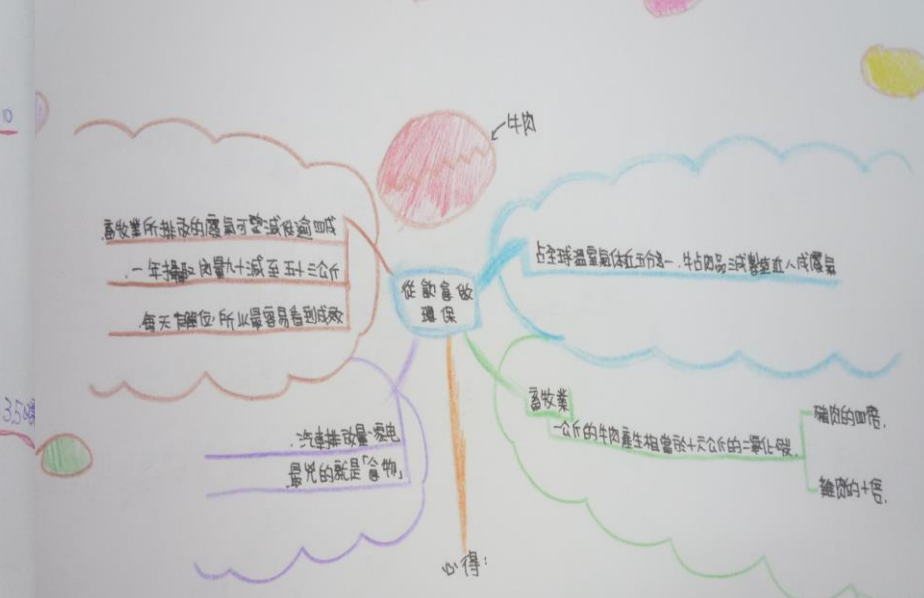 10
牛肉
畜牧業所排放的廢氣可望減低逾四成
一年攝取肉量九十減至五十三公斤
每天有 所以最容易看到成效
從飲食做
環保
占全球溫室氣体近五分之一.牛占肉品三成製造近八成廢氣
畜牧業
一公斤的牛肉產生相當於十六公斤的二氧化碳
豬肉的四倍.
雞肉的十倍.
汽車排放量、家電
最兇的就是「食物」
心得:
35